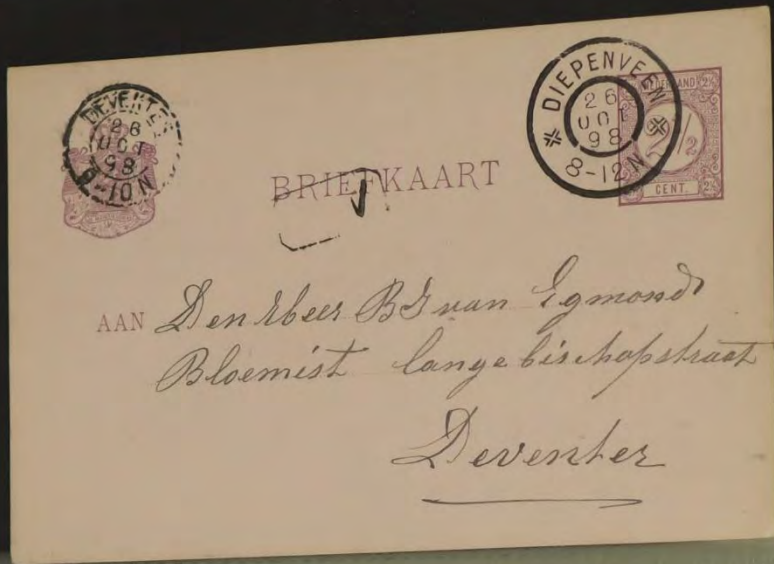 DEVENTER
26
OCT
98
8-10N
DIEPENVEEN
26
OCT
98
8-12N
NEDERLAND
2½
CENT.
BRIEFKAART
J
AAN Den Heer BJ van Egmond
Bloemist lange bisschopstraat
Deventer